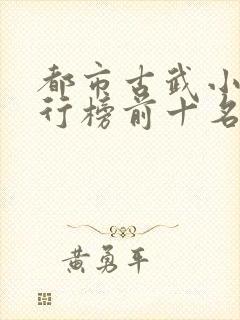 都市古武小
行榜前十名
黄勇平